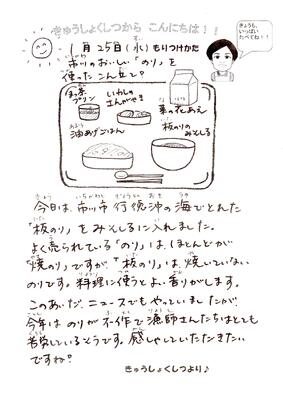 きゅうしょくしつから こんにちは!!
きょうも、
いっぱい
たべてね!!
1月25日(水)もりつけかた
市川のおいしい「のり」を
使ったこんだて♪
お茶
プリン
いわしの
さんがやき
菜の花あえ
油あげごはん
板のりの
みそしる
今日は、市川市行徳沖の海でとれた
「板のり」をみそしるに入れました。
よく売られている「のり」は、ほとんどが
「焼のり」ですが、「板のり」は、焼いていない
のりです。料理に使うとよい香りがします。
このあいだ、ニュースでもやっていましたが、
今年はのりが不作で漁師さんたちはとても
苦労しているそうです。感しゃしていただきたい
ですね。
きゅうしょくしつより♪